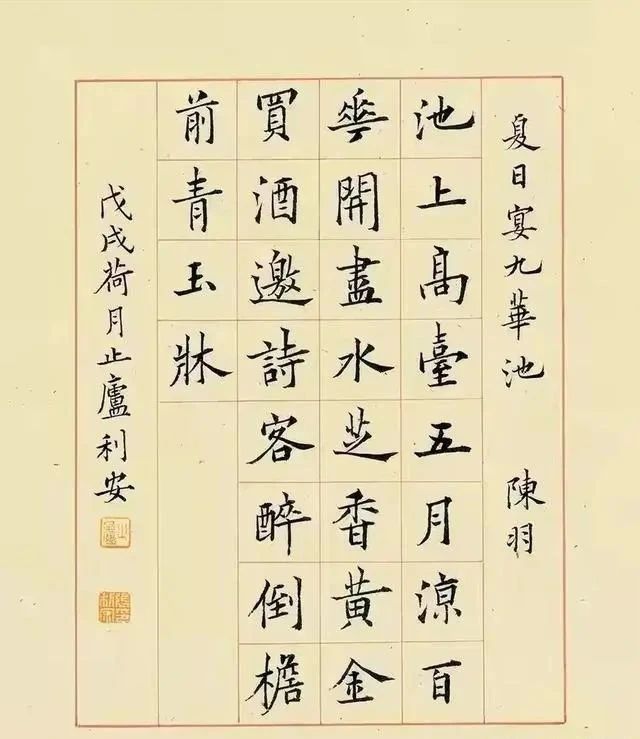 夏日宴九華池 陳羽
池上高臺五月涼百
華開盡水芝香黃金
買酒邀詩客醉倒檐
前青玉牀
戊戌荷月止廬利安